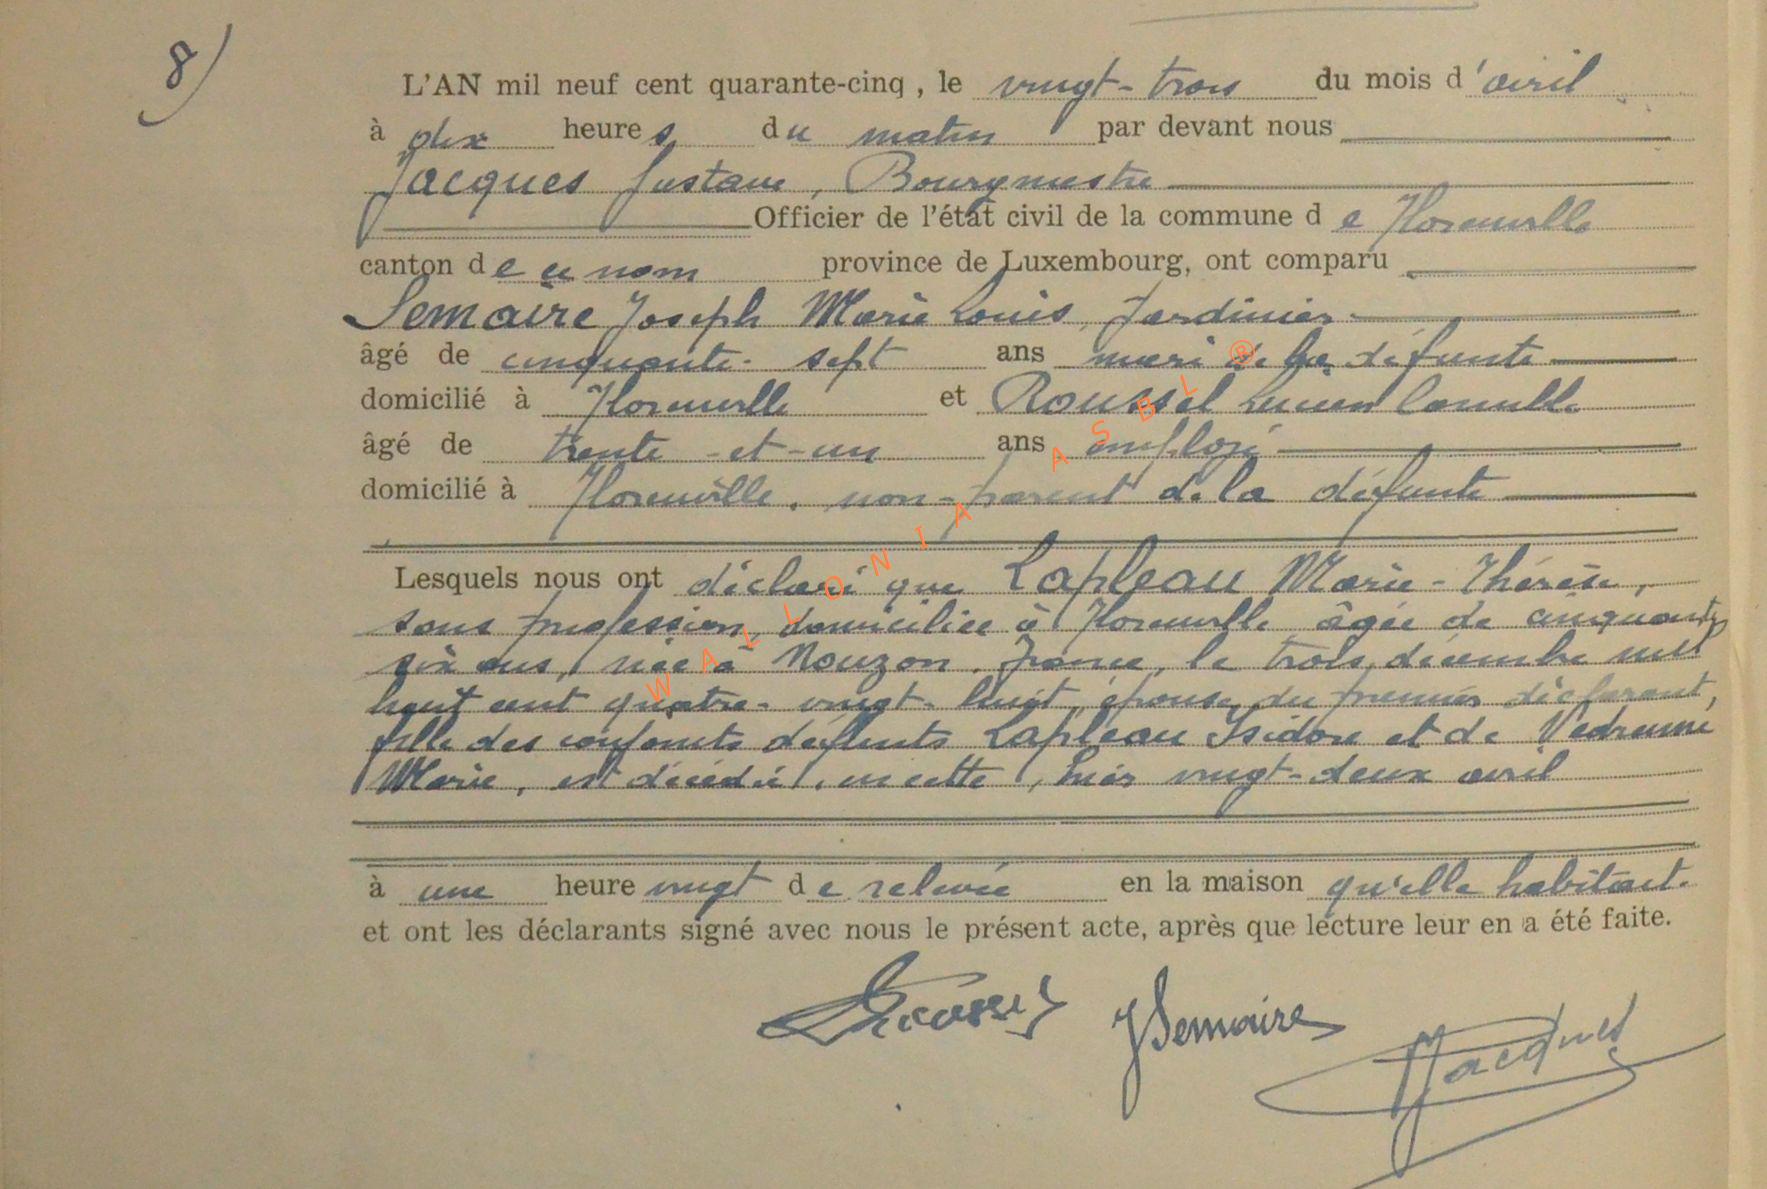 8)
L'AN mil neuf cent quarante-cinq, le vingt-trois du mois d'avril
à dix heures du matin par devant nous
Jacques Gustave, Bourgmestre
Officier de l'état civil de la commune de Florenville
canton de ce nom province de Luxembourg, ont comparu
Semaire Joseph Marie Louis, Jardinier
âgé de cinquante-sept ans mari de la défunte
domicilié à Florenville et Roussel Lucien Camille
âgé de trente-et-un ans employé
domicilié à Florenville, non-parent de la défunte
Lesquels nous ont déclaré que Lapleau Marie-Thérèse,
sans profession, domiciliée à Florenville âgée de cinquante
six ans, née à Nouzon, France, le trois décembre mil
huit cent quatre-vingt-huit, épouse du premier déclarant,
fille des conjoints défunts Lapleau Isidore et de Vedrenne
Marie, est décédée, en cette, hier vingt-deux avril
à une heure vingt de relevée en la maison qu'elle habitait.
et ont les déclarants signé avec nous le présent acte, après que lecture leur en a été faite.
Roussel JSemaire Jacques
WALLONIA ASBL ®